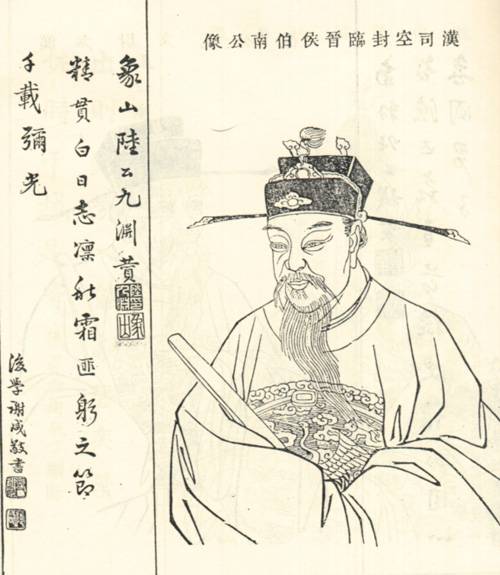 漢司空封臨晉侯伯南公像
象山陸公九淵贊
精貫白日志凛秋霜匪躬之節
千載彌光
後學謝成敬書